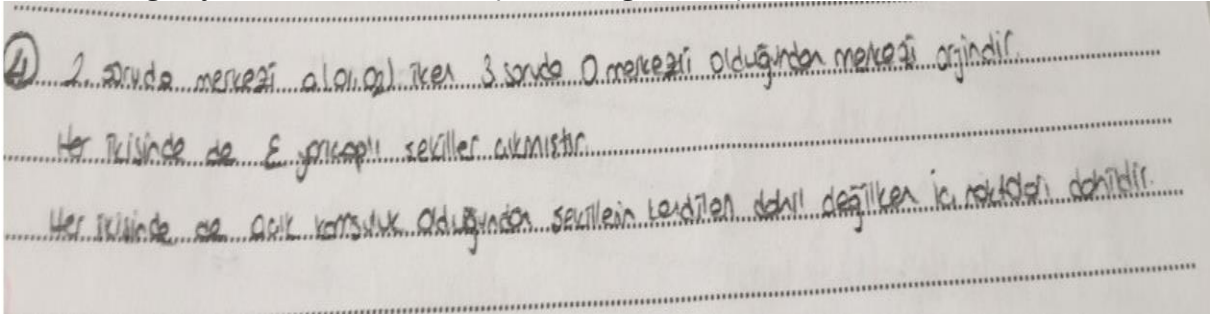 ④ 2. soruda merkezi a(a1,a2) iken 3. soruda O merkezli olduğundan merkezi orjindir.
Her ikisinde de ε yarıçaplı şekiller çıkmıştır.
Her ikisinde de açık komşuluk olduğundan şekillerin kendileri dahil değilken iç noktaları dahildir.